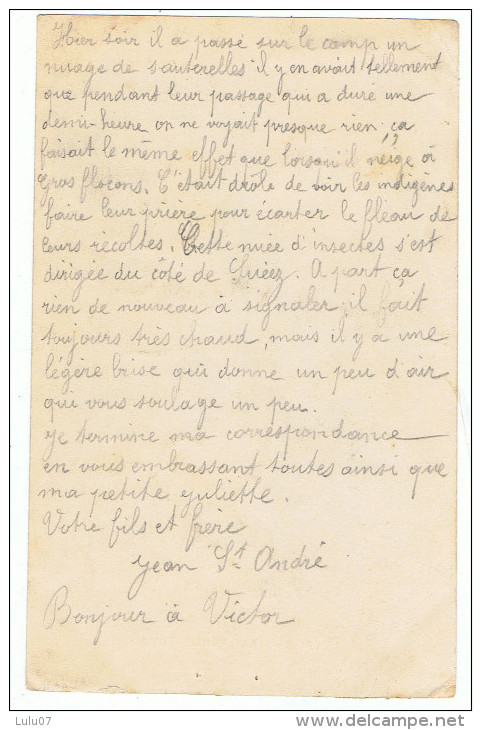 Hier soir il a passé sur le camp un
nuage de sauterelles il y en avait tellement
que pendant leur passage qui a duré une
demi-heure on ne voyait presque rien ça
faisait le même effet que lorsqu'il neige à
gros flocons. C'était drôle de voir les indigènes
faire leur prière pour écarter le fléau de
leurs récoltes. Cette nuée d'insectes s'est
dirigée du côté de Suéez. A part ça
rien de nouveau à signaler il fait
toujours très chaud, mais il y a une
légère brise qui donne un peu d'air
qui vous soulage un peu.
Je termine ma correspondance
en vous embrassant toutes ainsi que
ma petite Juliette.
Votre fils et frère
Jean St André
Bonjour à Victor
Lulu07
www.delcampe.net